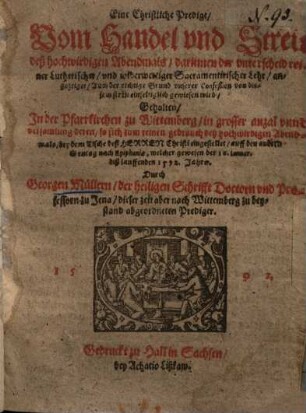 N. 93.
Eine Christliche Predige/
Vom Handel vnd Streit
deß hochwirdigen Abendmals/ darinnen der vnterscheid rei-
ner Lutherischer/ vnd widerwertiger Sacramentirischer Lehr/ an-
gezeiget/ Auch der richtige Grund vnserer Confession von die-
sem Artickel gewiesen wird/
Gehalten/
In der Pfarrkirchen zu Wittemberg/ in grosser anzal vnd
versamlung derer/ so sich zum reinen gebrauch deß hochwirdigen Abend-
mals/ bey dem Tische deß HERREN Christi eingestellet/ auff den andern
Sontag nach Epiphaniæ, welcher gewesen der 16. Januar.
deß lauffenden 1592. Jahrs.
Durch
Georgen Müllern/ der heiligen Schrifft Doctorn vnd Pro-
fessorn zu Jena/ dieser zeit aber nach Wittemberg zu bey-
stand abgeordneten Prediger.
15 92.
Gedruckt zu Hall in Sachsen/
bey Achatio Lißkaw.